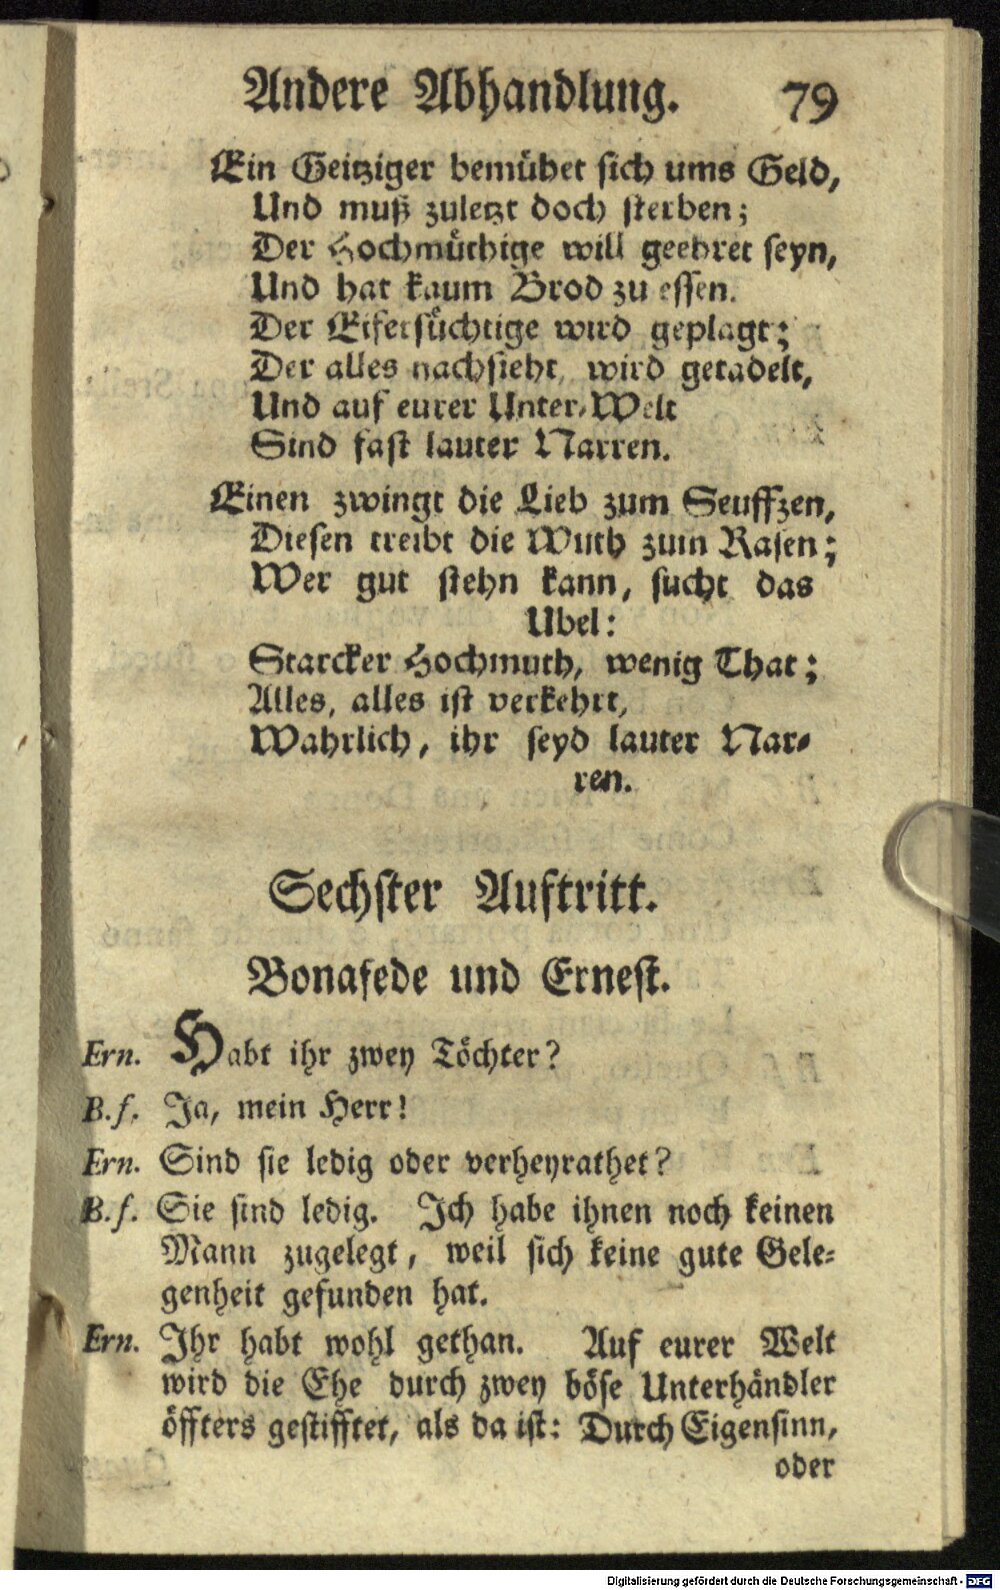 Andere Abhandlung. 79
Ein Geitziger bemühet sich ums Geld,
Und muß zuletzt doch sterben;
Der Hochmüthige will geehret seyn,
Und hat kaum Brod zu essen.
Der Eifersüchtige wird geplagt;
Der alles nachsieht, wird getadelt,
Und auf eurer Unter-Welt
Sind fast lauter Narren.
Einen zwingt die Lieb zum Seuffzen,
Diesen treibt die Wuth zum Rasen;
Wer gut stehn kann, sucht das
Ubel:
Starcker Hochmuth, wenig That;
Alles, alles ist verkehrt,
Wahrlich, ihr seyd lauter Nar-
ren.
Sechster Auftritt.
Bonafede und Ernest.
Ern. Habt ihr zwey Töchter?
B.f. Ja, mein Herr!
Ern. Sind sie ledig oder verheyrathet?
B.f. Sie sind ledig. Ich habe ihnen noch keinen
Mann zugelegt, weil sich keine gute Gele-
genheit gefunden hat.
Ern. Ihr habt wohl gethan. Auf eurer Welt
wird die Ehe durch zwey böse Unterhändler
öffters gestifftet, als da ist: Durch Eigensinn,
oder
Digitalisierung gefördert durch die Deutsche Forschungsgemeinschaft - DFG